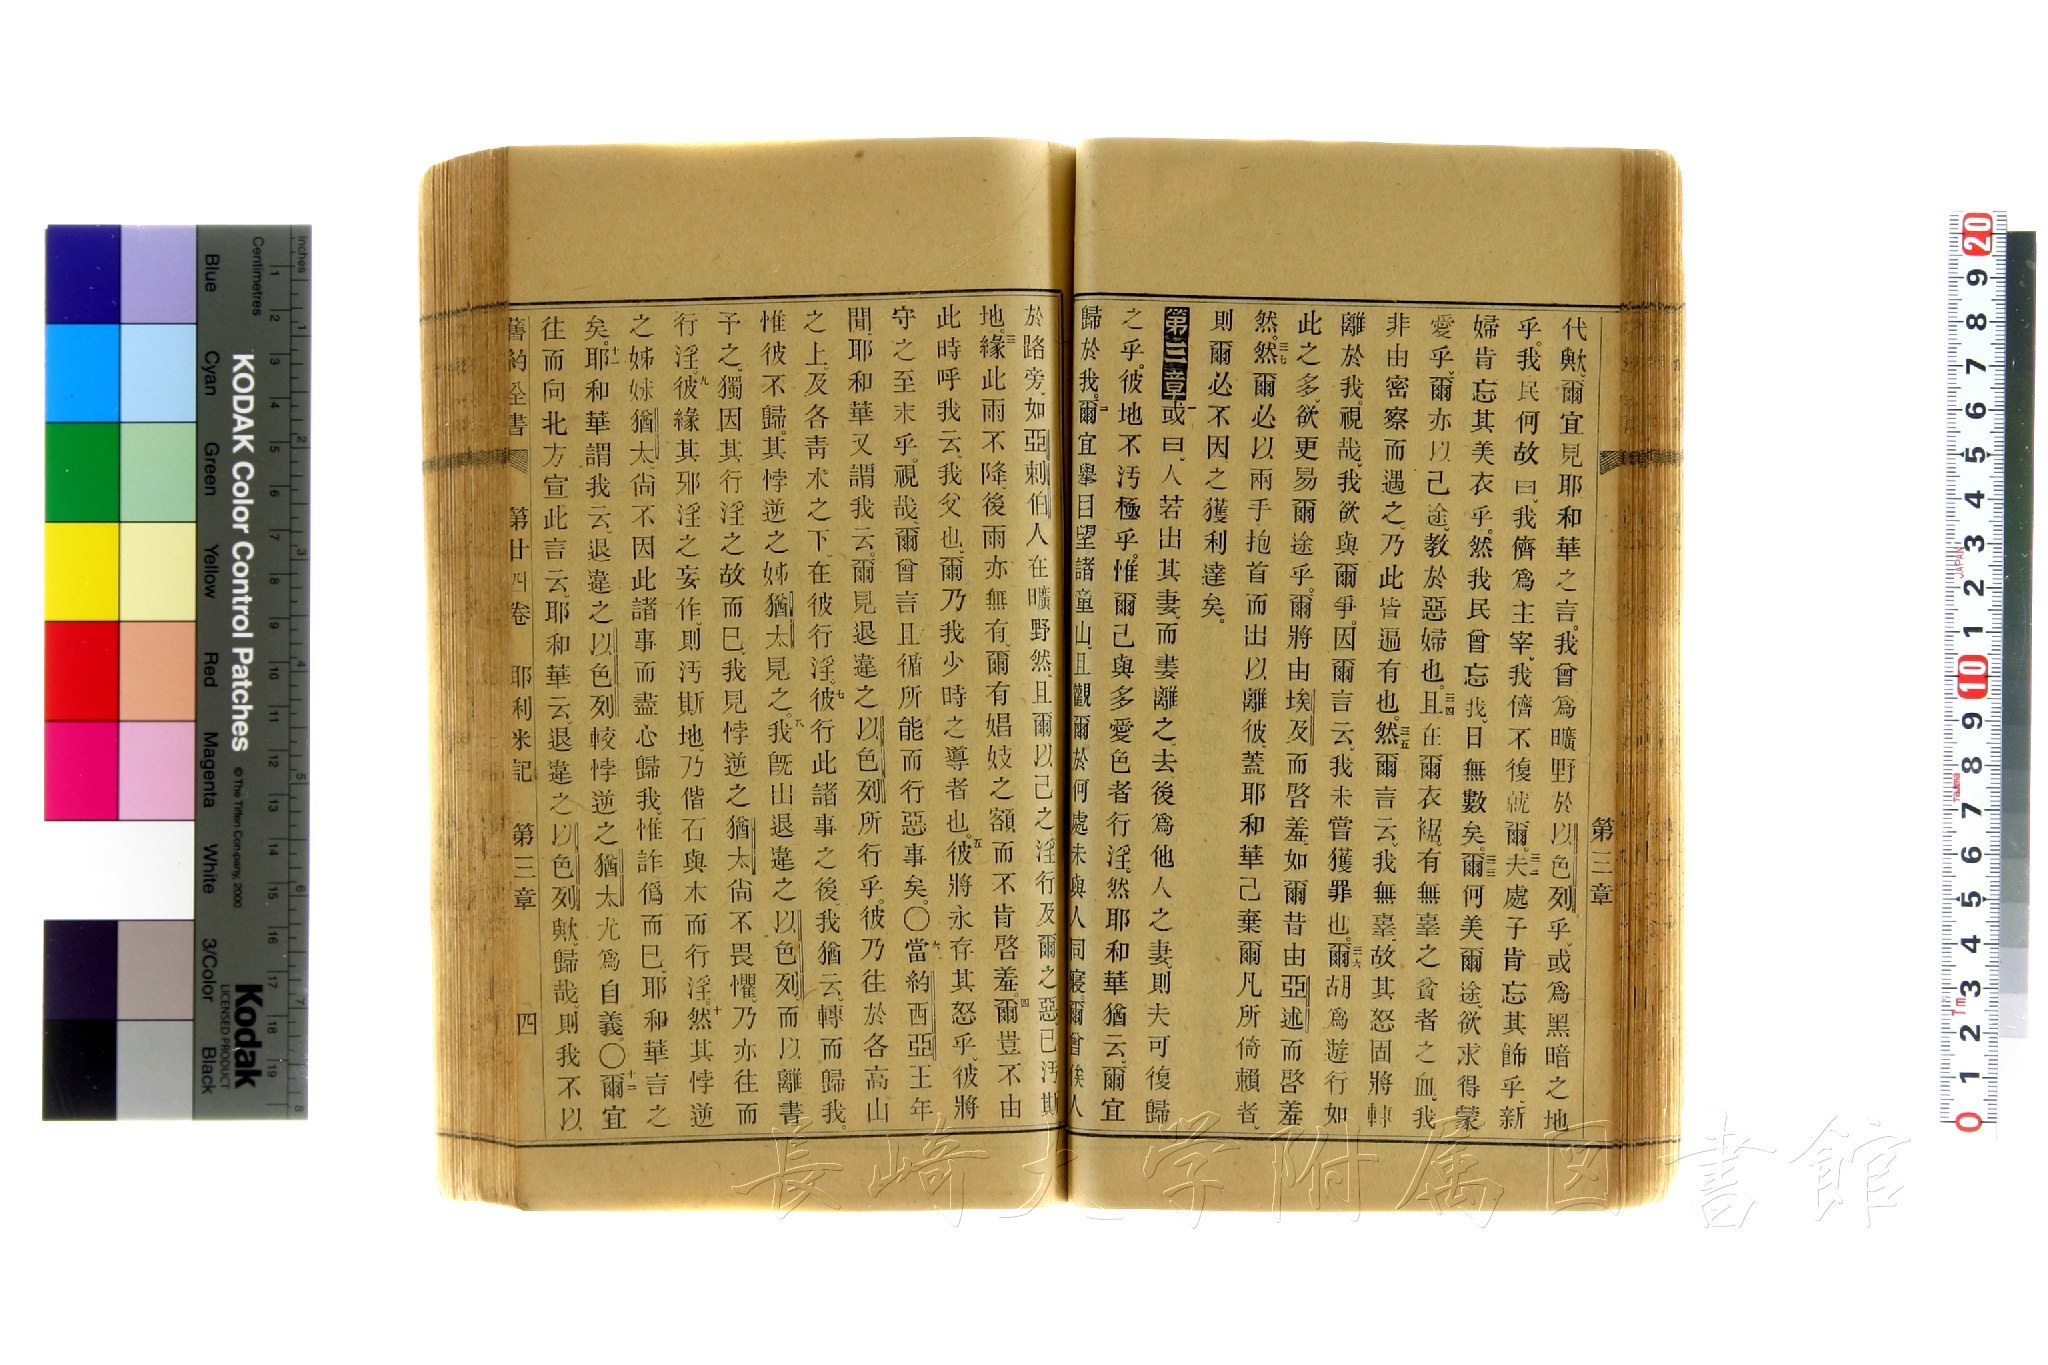 第三章
代歟、爾宜見耶和華之言。我曾爲曠野於以色列乎、或爲黑暗之地
乎。我民何故曰、我儕爲主宰、我儕不復就爾。三二夫處子肯忘其飾乎、新
婦肯忘其美衣乎。然我民曾忘我、日無數矣。三三爾何美爾途、欲求得蒙
愛乎、爾亦以己途、教於惡婦也。三四且在爾衣裾、有無辜之貧者之血、我
非由密察而遇之、乃此皆遍有也。三五然爾言云、我無辜、故其怒固將轉
離於我。視哉、我欲與爾爭。因爾言云、我未嘗獲罪也。三六爾胡爲遊行如
此之多、欲更易爾途乎。爾將由埃及而啓羞、如爾昔由亞述而啓羞
然。三七然爾必以兩手抱首而出以離彼、蓋耶和華己棄爾凡所倚賴者、
則爾必不因之獲利達矣。
第三章一或曰、人若出其妻、而妻離之、去後爲他人之妻、則夫可復歸
之乎。彼地不汚極乎。惟爾己與多愛色者行淫。然耶和華猶云、爾宜
歸於我。二爾宜舉目望諸童山、且觀爾於何處未與人同寢。爾曾俟人
於路旁、如亞剌伯人在曠野然、且爾以己之淫行及爾之惡已汚斯
地。三緣此雨不降、後雨亦無有、爾有娼妓之額而不肯啓羞。四爾豈不由
此時呼我云、我父也、爾乃我少時之導者也。五彼將永存其怒乎、彼將
守之至末乎。視哉、爾曾言且循所能而行惡事矣。〇六當約西亞王年
間、耶和華又謂我云、爾見退違之以色列所行乎。彼乃往於各高山
之上、及各靑木之下、在彼行淫。七彼行此諸事之後、我猶云、轉而歸我。
惟彼不歸。其悖逆之姊猶太見之。八我旣出退違之以色列、而以離書
予之、獨因其行淫之故而已、我見悖逆之猶太尙不畏懼、乃亦往而
行淫。九彼緣其邪淫之妄作、則汚斯地、乃偕石與木而行淫。十然其悖逆
之姊妹猶太、尙不因此諸事而盡心歸我、惟詐僞而已、耶和華言之
矣。十一耶和華謂我云、退違之以色列較悖逆之猶太尤爲自義。〇十二爾宜
往而向北方宣此言云、耶和華云、退違之以色列歟、歸哉、則我不以
舊約全書 第廿四卷 耶利米記 第三章 四
KODAK Color Control Patches
© The Tiffen Company, 2000
Kodak
LICENSED PRODUCT
Inches
Centimetres
Blue Cyan Green Yellow Red Magenta White 3/Color Black
長崎大学附属図書館